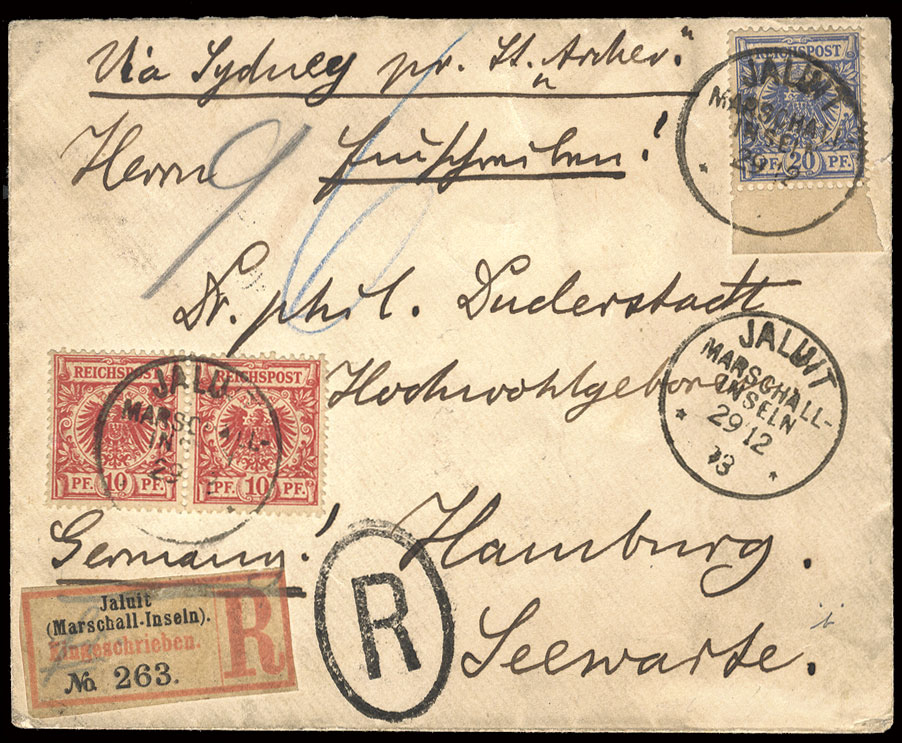 Via Sydney pr. St. "Archer."
Herrn Einschreiben!
Dr. phil. Duderstadt
Hochwohlgeboren
Hamburg.
Seewarte.
Germany!
REICHSPOST
PF. 20 PF.
JALUIT
MARSCHALL-
INSELN
29
REICHSPOST
PF. 10 PF.
REICHSPOST
PF. 10 PF.
JALU
MARSCHALL-
IN
29
JALUIT
MARSCHALL-
INSELN
29 12
93
96
Jaluit
(Marschall-Inseln).
Eingeschrieben.
No. 263.
R
R